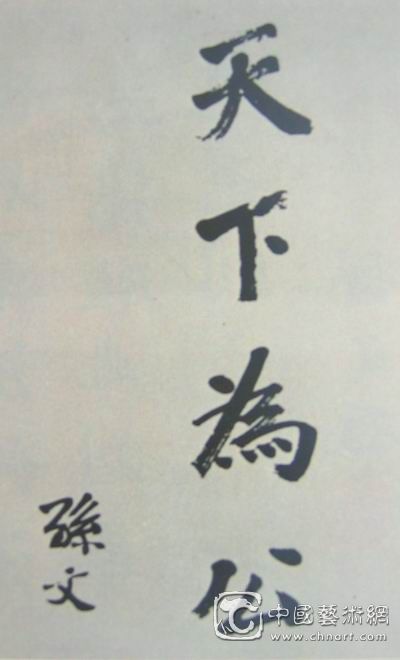 天下為公
孫文
中國藝術網
www.chnart.com